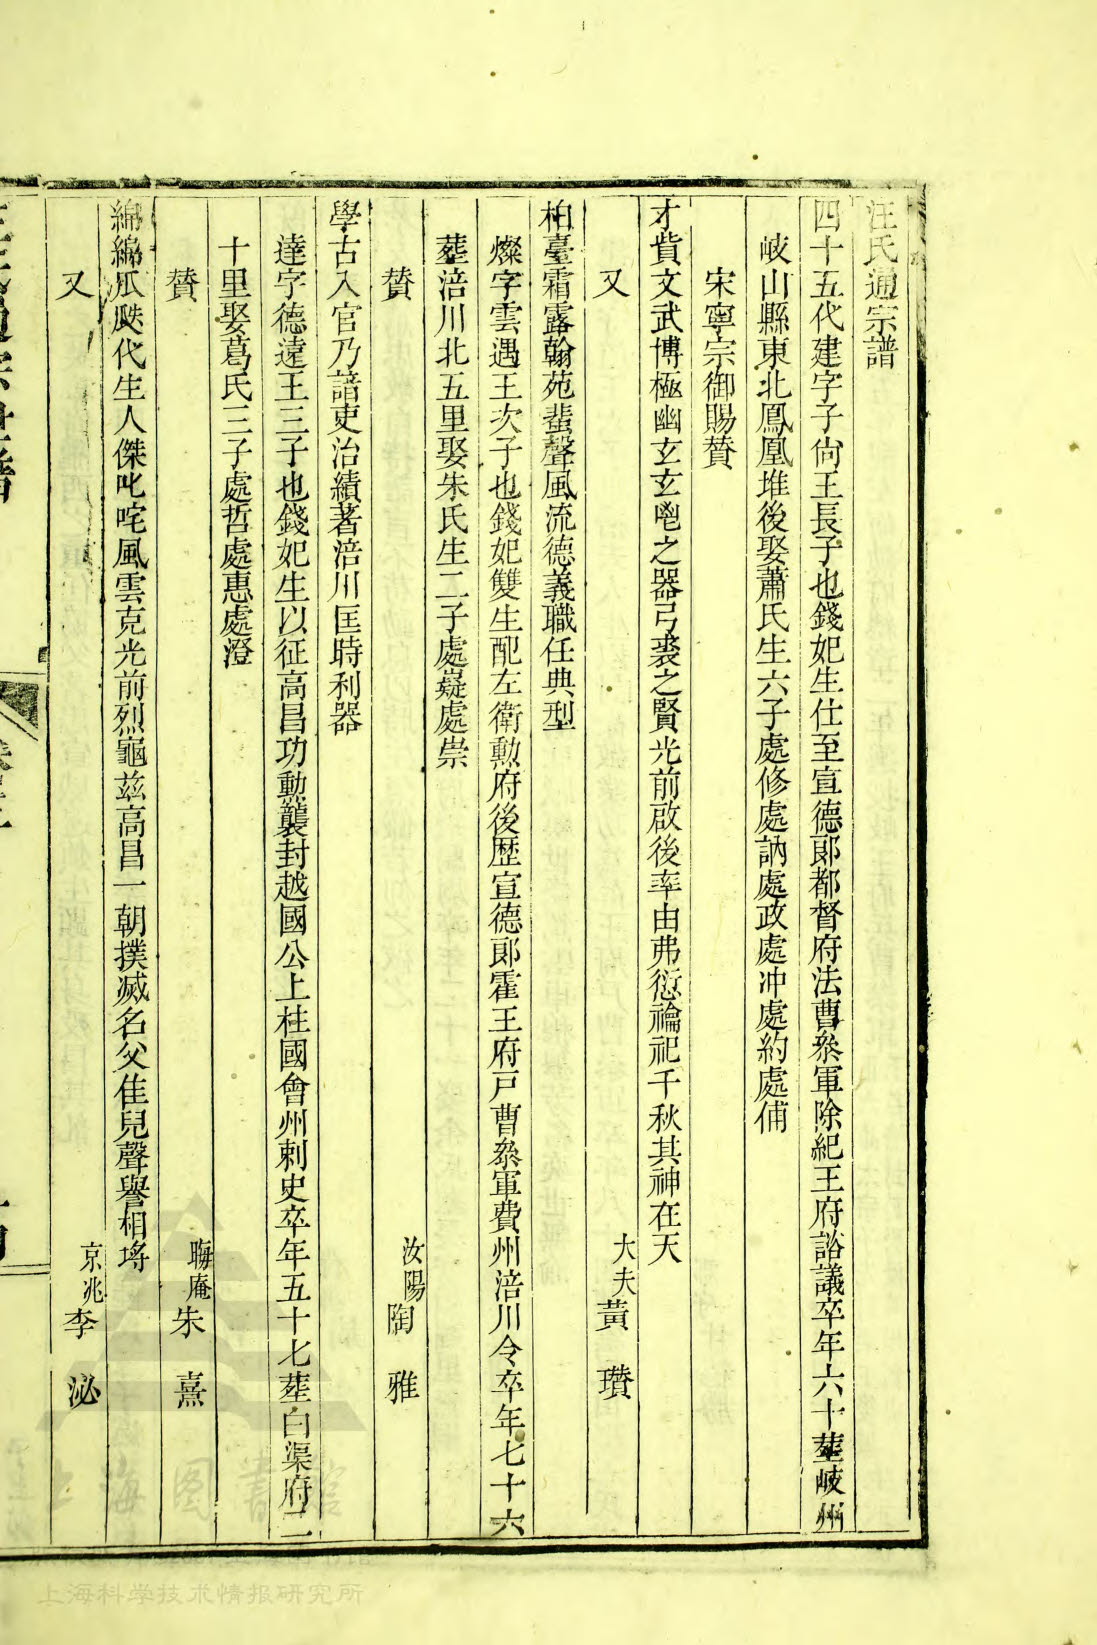 汪氏通宗譜
四十五代建字子尙王長子也錢妃生仕至宣德郞都督府法曹叅軍除紀王府諮議卒年六十塟岐州
岐山縣東北鳳凰堆後娶蕭氏生六子處修處訥處政處冲處約處俌
宋寧宗御賜贊
才貲文武博極幽玄玄鬯之器弓裘之賢光前啟後率由弗愆禴祀千秋其神在天
又 大夫黃 瓚
柏臺霜露翰苑蜚聲風流德義職任典型
燦字雲遇王次子也錢妃雙生配左衛勲府後歴宣德郞霍王府戸曹叅軍費州涪川令卒年七十六
塟涪川北五里娶朱氏生二子處嶷處崇
贊 汝陽陶 雅
學古入官乃諳吏治績著涪川匡時利器
達字德遠王三子也錢妃生以征高昌功勲襲封越國公上柱國會州刺史卒年五十七塟白渠府二
十里娶葛氏三子處哲處惠處澄
贊 晦庵朱 熹
綿綿瓜瓞代生人傑叱咤風雲克光前烈龜茲高昌一朝撲滅名父佳兒聲譽相埒
又 京兆李 泌
上海图書馆
上海科学技术情报研究所